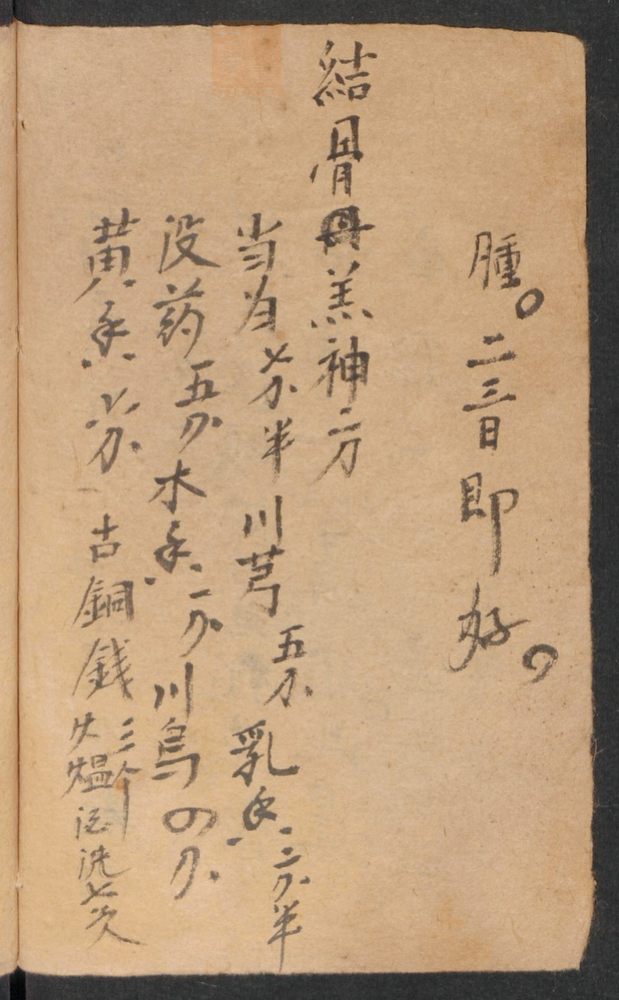 腫。二三日即好。
結骨丹羔神方
当归 半 川芎 五分 乳香 二分半
没药 五分 木香 一分 川烏 四分
黄香 分 古銅錢 三个 火煴 洗七次